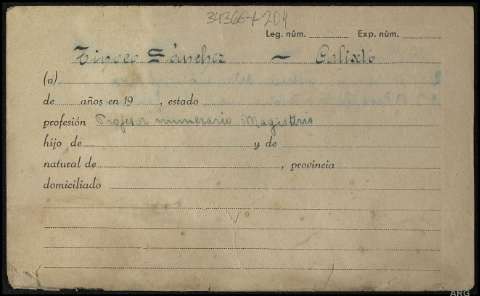 34366+204
Leg. núm. Exp. núm.
Tinoco Sánchez — Calixto
(a)
de años en 19 , estado
profesión Profesor numerario Magisterio
hijo de y de
natural de , provincia
domiciliado
ARG